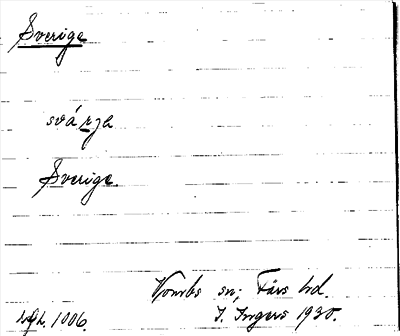 Sverige
svárja
Sverige.
Vombs sn; Färs hd.
I. Ingers 1930.
1006.